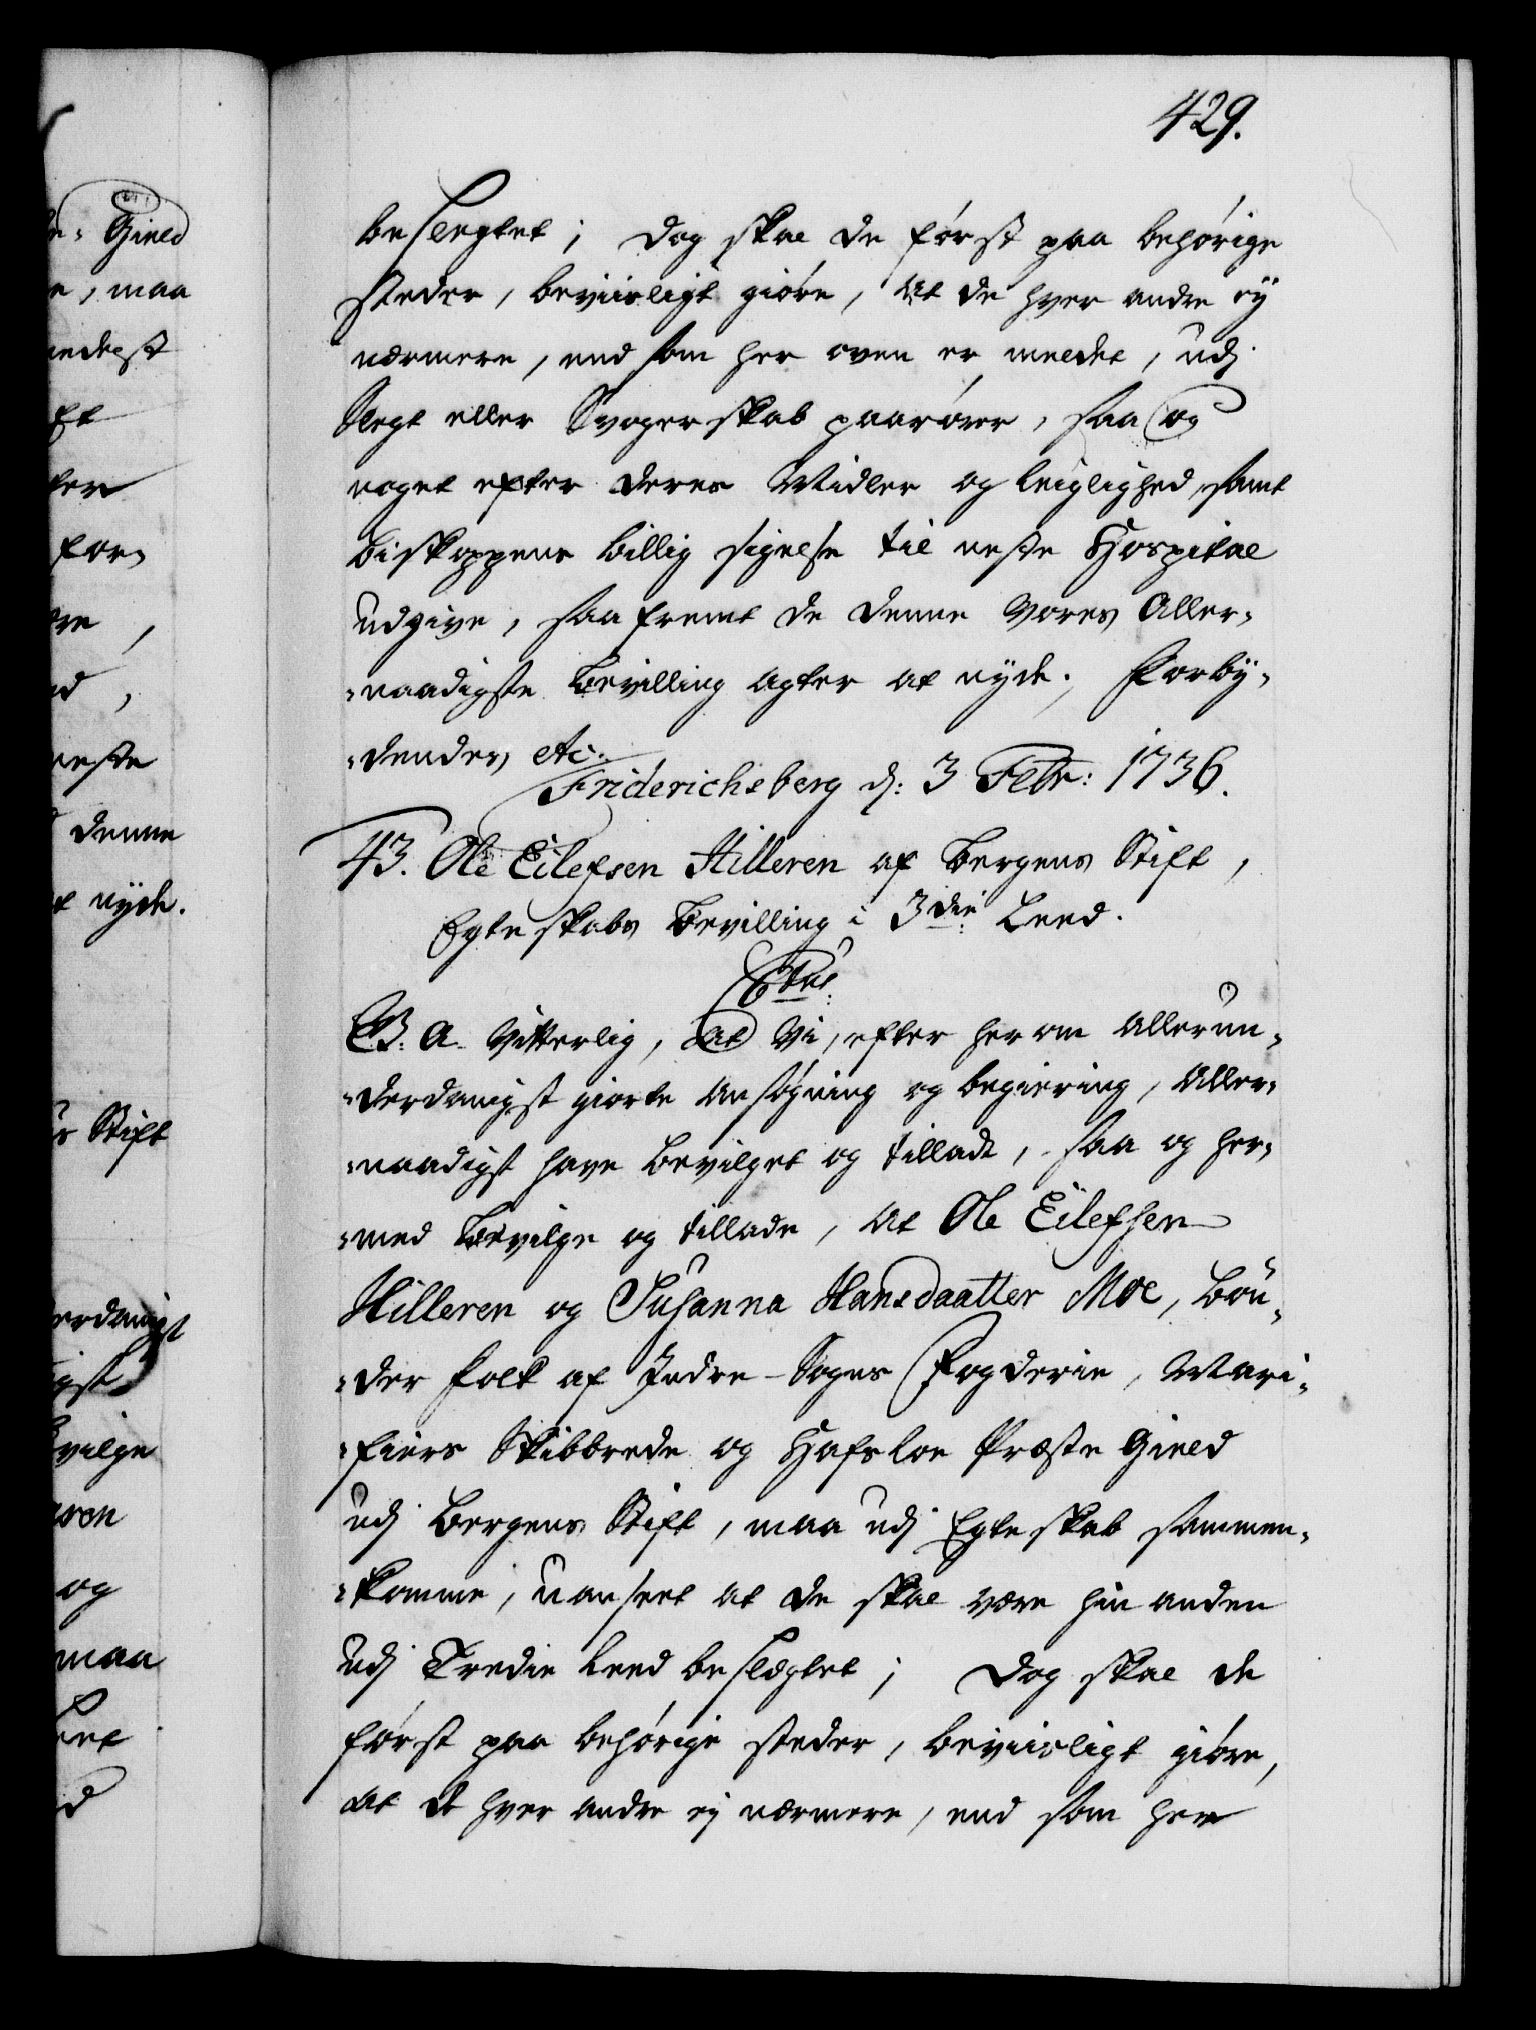 429.
beslegtet; Dog skal de først paa behørige
steder, beviisligt giøre, at de hver andre ey
nærmere, end som her oven er meldet, udj
Slegt eller Svogerskab paarører, saa og
noget efter deres Midler og leiglighed, samt
biskoppens billig sigelse til neste Hospital
udgive, saa fremt de denne Vores Aller-
-naadigste Bevilling agter at nyde. Forby-
-dendes etc:
Friderichsberg d: 3 Febr: 1736.
43. Ole Eilefsen Hilleren af Bergens Stift,
Egteskabs Bevilling i 3die Leed.
C6tus:
G: A. Vitterlig, at Vi, efter herom allerun-
-derdanigst giorte Ansøgning og begiering, Aller-
-naadigst have bevilget og tilladt, saa og her-
-med bevilge og tillade, at Ole Eilefsen
Hilleren og Susanna Hansdaatter Moe, Bøn-
-der folk af Indre-Sogns Fogderie, Mari-
-fiers Skibbrede og Hafsloe Præste Gield
udj Bergens Stift, maa udj Egteskab sammen-
-komme, uanseet at de skal være hin anden
udj Tredie Leed beslægtet; Dog skal de
først paa behørige steder, beviisligt giøre,
at de hver andre ej nærmere, end som her